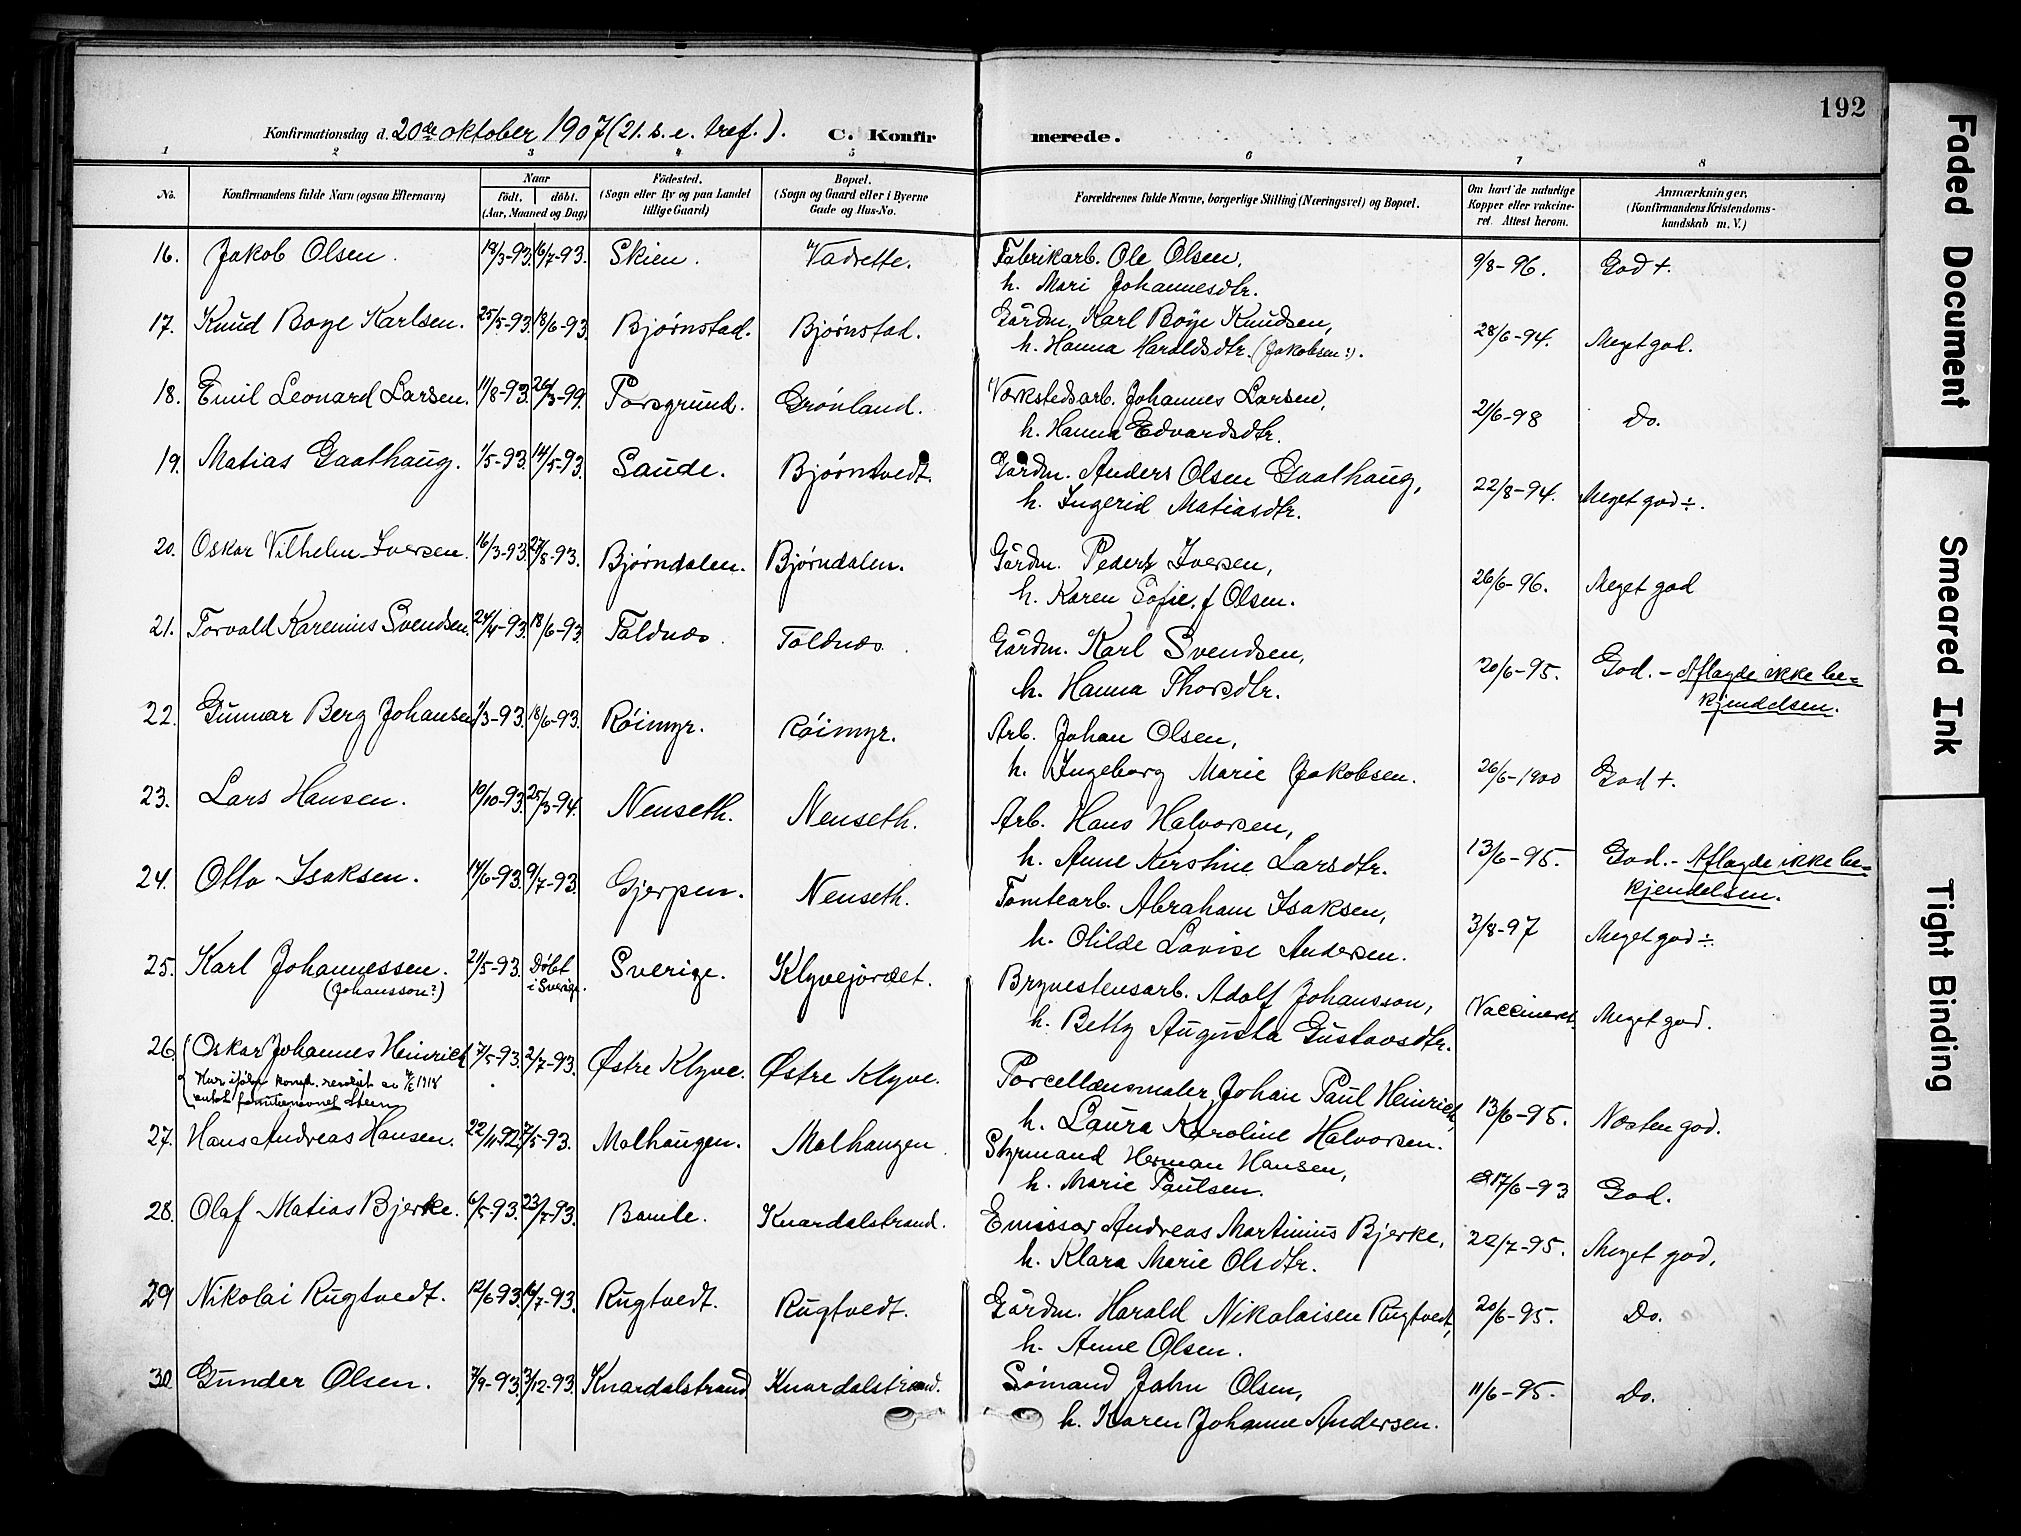 192
Konfirmationsdag d. 20de oktober 1907 (21. s. e. tref.). C. Konfirmerede.
1 2 3 4 5 6 7 8
No. Konfirmandens fulde Navn (ogsaa Efternavn) Naar født, døbt. (Aar, Maaned og Dag) Fødested. (Sogn eller By og paa Landet tillige Gaard) Bopæl. (Sogn og Gaard eller i Byerne Gade og Hus-No. Forældrenes fulde Navne, borgerlige Stilling (Næringsvei) og Bopæl. Om havt de naturlige Kopper eller vakcineret. Attest herom. Anmærkninger, (Konfirmandens Kristendomskundskab m. V.)
16. Jakob Olsen. 18/3-93. 16/7-93. Skien. Vadrette. Fabrikarb. Ole Olsen, 9/8-96. God +.
h. Mari Johannesdtr.
17. Knud Boye Karlsen. 25/5-93. 18/6-93. Bjørnstad. Bjørnstad. Gårdm. Karl Boye Knudsen, 28/6-94. Meget god.
h. Hanna Haraldsdtr. (Jakobsen?).
18. Emil Leonard Larsen. 11/8-93. 26/3-99. Porsgrund. Grønland. Værkstedsarb. Johannes Larsen, 21/6-98 Do.
h. Hanna Edvardsdtr.
19. Matias Gaathaug. 1/5-93. 14/5-93. Saude. Bjørntvedt. Gårdm. Anders Olsen Gaathaug, 22/8-94. Meget god ÷.
h. Ingerid Matiasdtr.
20. Oskar Vilhelm Iversen. 16/3-93. 27/8-93. Bjørndalen. Bjørndalen. Gårdm. Peder Iversen, 26/6-96. Meget god
h. Karen Sofie f. Olsen.
21. Torvald Karenius Svendsen. 24/4-93. 18/6-93. Foldnæs. Toldnæs. Gårdm. Karl Svendsen, 20/6-95. God. - Aflagde ikke be-
h. Hanna Thorsdtr. kjendelsen.
22. Gunnar Berg Johansen 1/3-93. 18/6-93. Røimyr. Røimyr. Arb. Johan Olsen,
h. Ingeborg Marie Jakobsen. 26/6-1900 God +.
23. Lars Hansen. 10/10-93. 25/3-94. Nenseth. Nenseth. Arb. Hans Halvorsen,
h. Anne Kirstine Larsdtr. 13/6-95. God. - Aflagde ikke be-
kjendelsen.
24. Otto Isaksen. 14/6-93. 9/7-93. Gjerpen. Nenseth. Tomtearb. Abraham Isaksen,
h. Olilde Lovise Andersen. 3/8-97 Meget god ÷.
25. Karl Johannessen. (Johansson?) 21/5-93. Døbt i Sverige. Sverige. Klyvejordet. Bryvestensarb. Adolf Johansson, Vaccineret. Meget god.
h. Betty Augusta Gustavsdtr.
26. Oskar Johannes Heinrich 7/5-93. 2/7-93. Østre Klyve. Østre Klyve. Porcellænsmaler Johan Paul Heinrich, 13/6-95. Næsten god.
Har ifølge kongl. resolut. av 1918
antat familienavnet Steen
h. Laura Karoline Halvorsen.
27. Hans Andreas Hansen. 22/11-92. 7/5-93. Malhaugen. Malhaugen. Styrmand Herman Hansen,
h. Marie Paulsen. 17/6-93 God.
28. Olaf Matias Bjerke. 6/5-93. 23/7-93. Bamle. Knardalstrand. Emissær Andreas Martinius Bjerke, 22/7-95. Meget god.
h. Klara Marie Olsdtr.
29 Nikolai Rugtvedt. 12/6-93. 16/7-93. Rugtvedt. Rugtvedt. Gårdm. Harald Nikolaisen Rugtvedt, 20/6-95. Do.
h. Anne Olsen.
30. Gunder Olsen. 7/9-93. 3/12-93. Knardalstrand Knardalstrand. Sømand John Olsen, 11/6-95. Do.
h. Karen Johanne Andersen.
Faded Document
Smeared Ink
Tight Binding